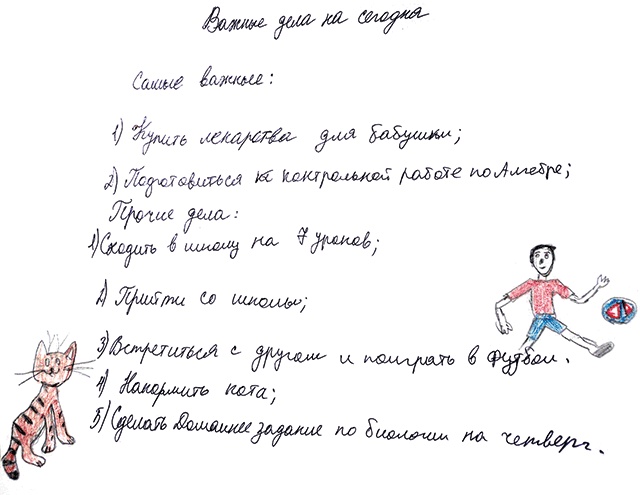 Важные дела на сегодня
Самые важные:
1) Купить лекарства для бабушки;
2) Подготовиться к контрольной работе по Алгебре;
Прочие дела:
1) Сходить в школу на 7 уроков;
2) Прийти со школы;
3) Встретиться с другом и поиграть в Футбол.
4) Накормить кота;
5) Сделать Домашнее задание по биологии на четверг.